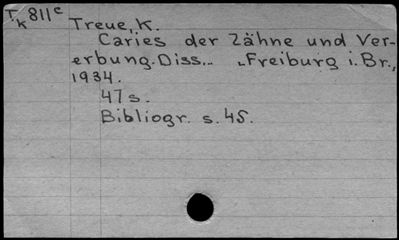 Tk 811c
Treue, K.
Caries der Zähne und Ver-
erbung. Diss... Freiburg i. Br.,
1934.
47 s.
Bibliogr. s. 45.